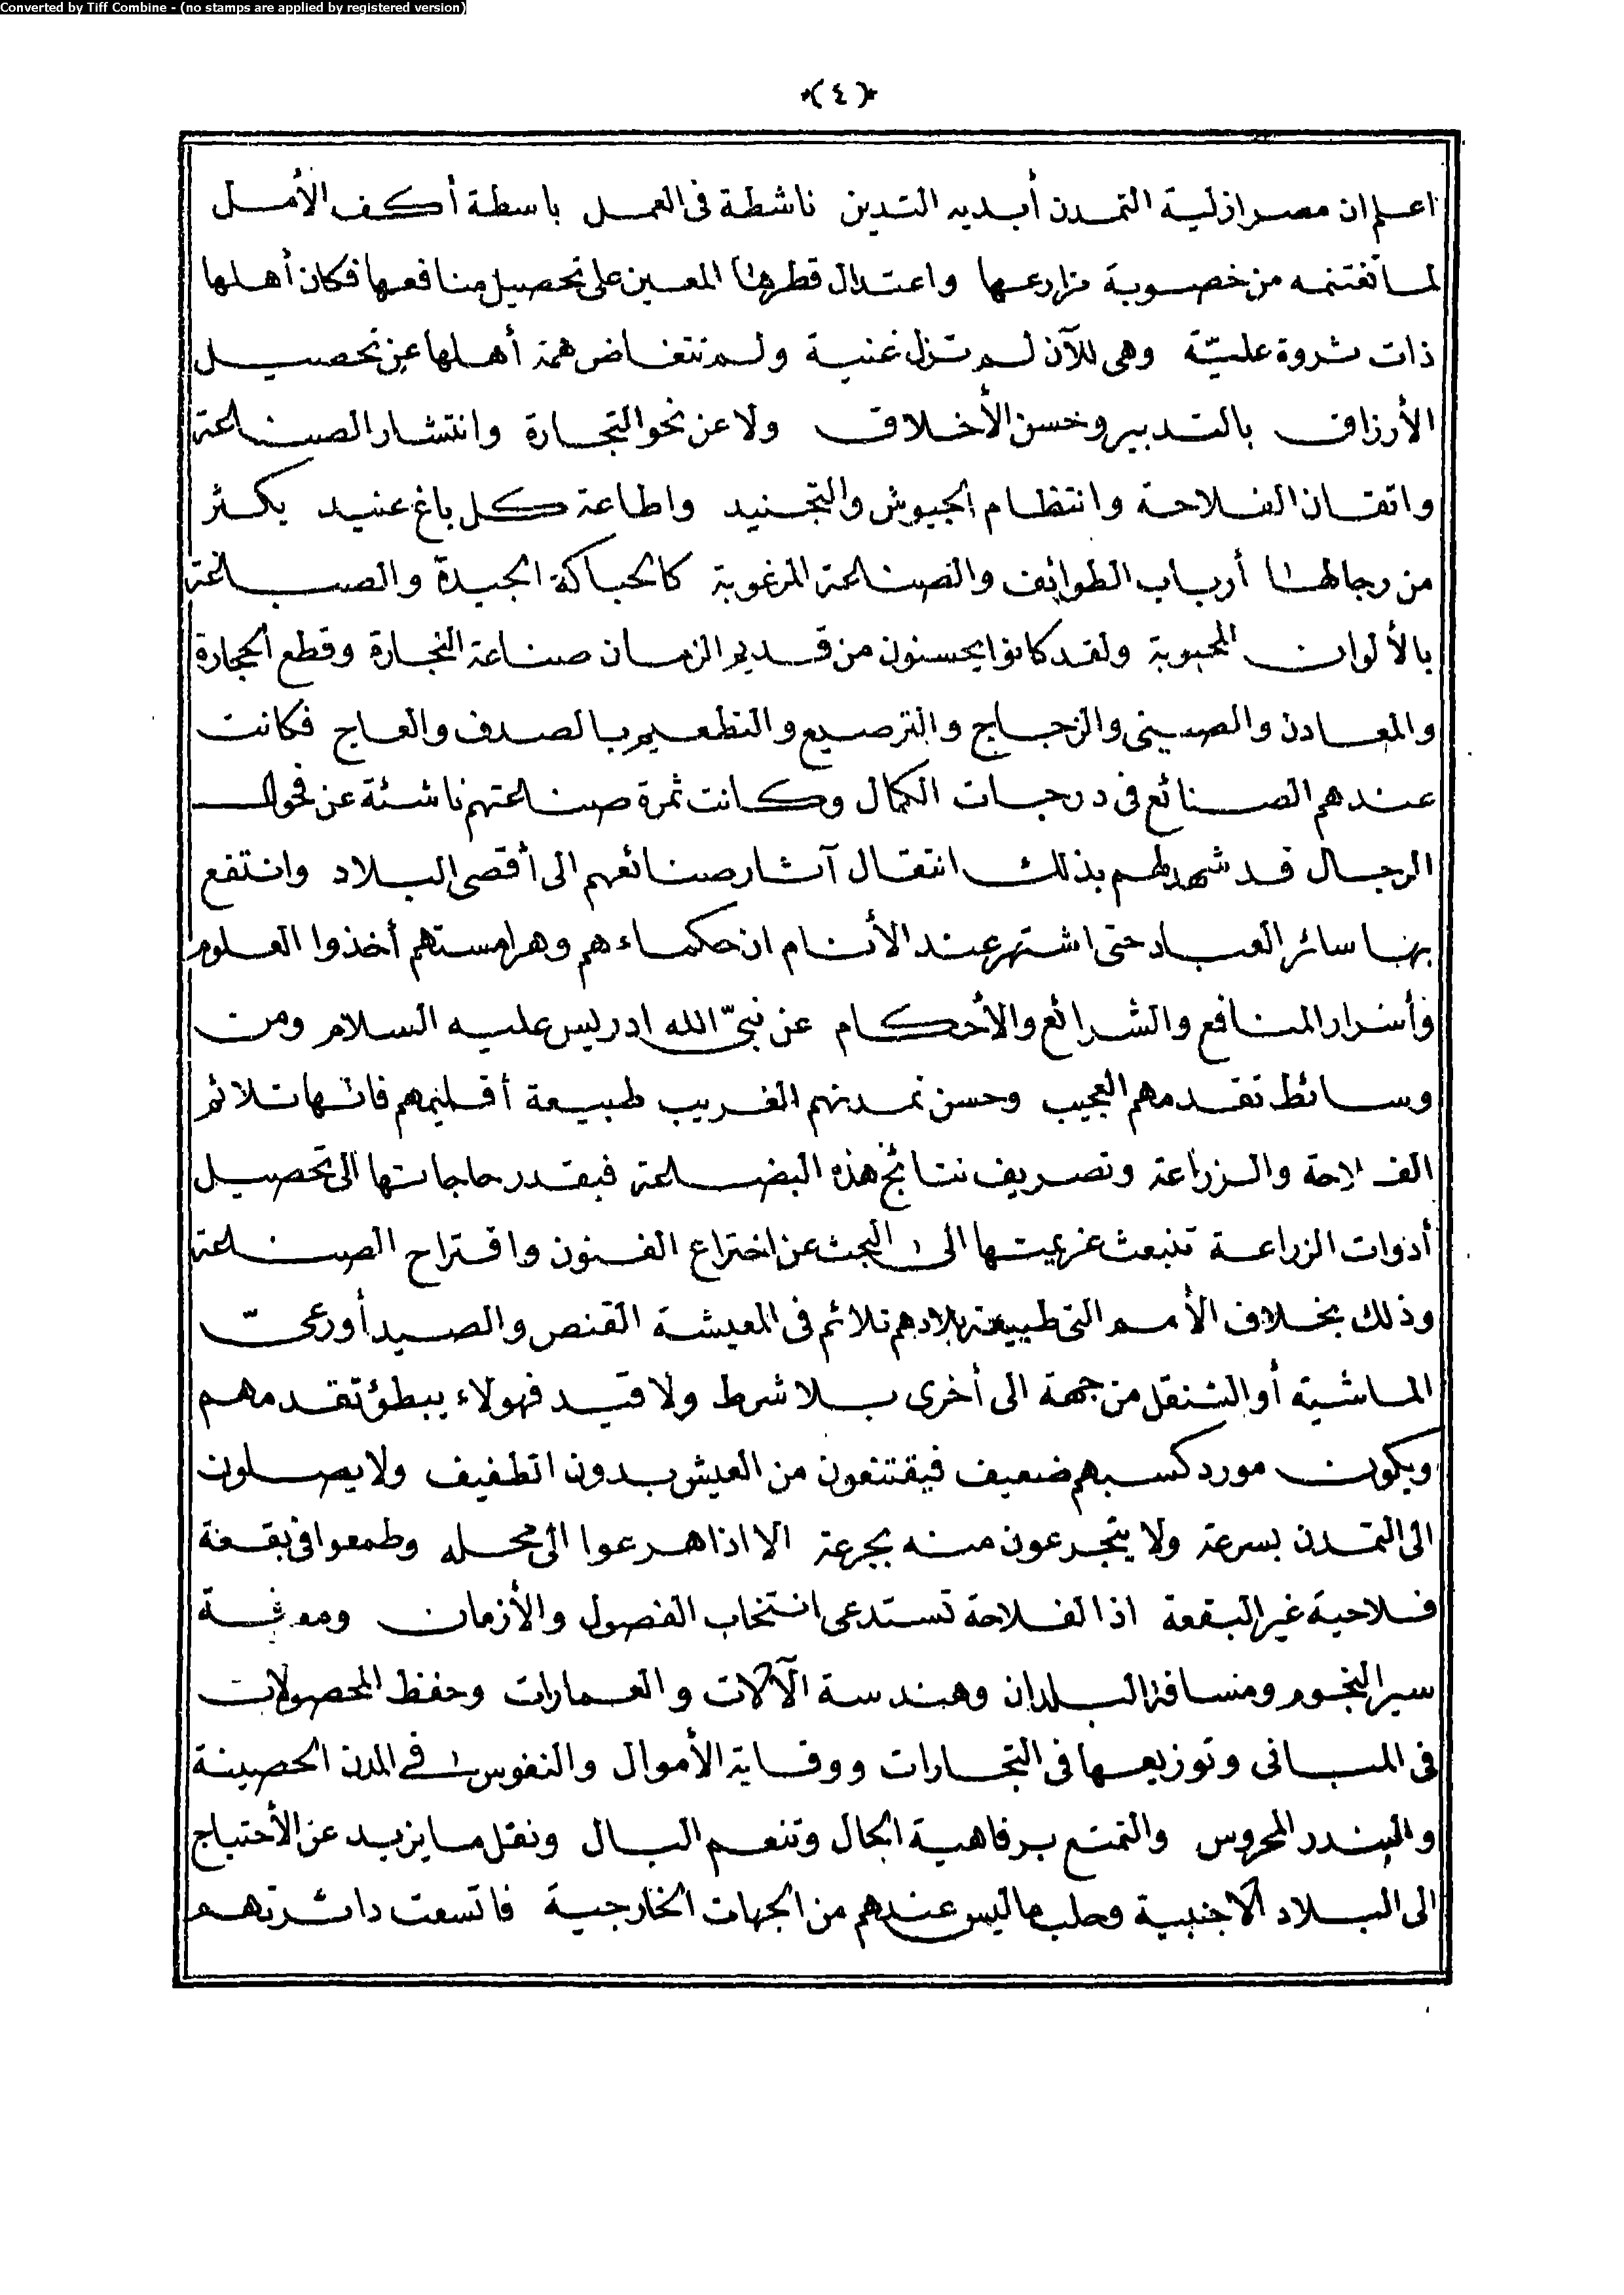 Converted by Tiff Combine - (no stamps are applied by registered version)
*(٤)*
اعلم ان مصر ازلية التمدن أبديه التدين ناشطة فى العمل باسطة أكف الأمل
لما تغتنمه من خصوبة مزارعها واعتدال قطرها المعين على تحصيل منافعها فكان أهلها
ذات ثروة عليّة وهى للآن لم تزل غنية ولم تتغاض همة أهلها عن تحصيل
الأرزاق بالتدبير وحسن الأخلاق ولا عن نحو التجارة وانتشار الصناعة
واتقان الفلاحة وانتظام الجيوش والتجنيد واطاعة كل باغ عنيد يكثر
من رجالها أرباب الطوائف والصناعة المرغوبة كالحياكة الجيدة والصباغة
بالألوان المحبوبة ولقد كانوا يحسنون من قديم الزمان صناعة النجارة وقطع الحجارة
والمعادن والصينى والزجاج والترصيع والتطعيم بالصدف والعاج فكانت
عندهم الصنائع فى درجات الكمال وكانت ثمرة صناعتهم ناشئة عن فحول
الرجال قد شهد لهم بذلك انتقال آثار صنائعهم الى أقصى البلاد وانتفع
بها سائر العباد حتى اشتهر عند الأنام ان حكماءهم وهرامستهم أخذوا العلوم
وأسرار المنافع والشرائع والأحكام عن نبىّ الله ادريس عليه السلام ومن
وسائط تقدمهم العجيب وحسن تمدنهم الغريب طبيعة أقليمهم فانها تلائم
الفلاحة والزراعة وتصريف نتائج هذه البضاعة فبقدر حاجاتها الى تحصيل
أدوات الزراعة تنبعث عزيمتها الى البحث عن اختراع الفنون واقتراح الصناعة
وذلك بخلاف الأمم التى طبيعة بلادهم تلائم فى المعيشة القنص والصيد أو رعىّ
الماشية أو التنقل من جهة الى أخرى بلا شرط ولا قيد فهولاء يبطؤ تقدمهم
ويكون مورد كسبهم ضعيف فيقتنعون من العيش بدون الطفيف ولا يصلون
الى التمدن بسرعة ولا يتجرعون منه بجرعة الا اذا هرعوا الى محله وطمعوا فى بقعة
فلاحية غير البقعة اذ الفلاحة تستدعى انتخاب الفصول والأزمان ومعرفة
سير النجوم ومسافة البلدان وهندسة الآلات والعمارات وحفظ المحصولات
فى المبانى وتوزيعها فى التجارات ووقاية الأموال والنفوس فى المدن الحصينة
والبندر المحروس والتمتع برفاهية الحال وتنعم البال ونقل ما يزيد عن الأحتياج
الى البلاد الاجنبية وجلب ما ليس عندهم من الجهات الخارجية فاتسعت دائرتهم